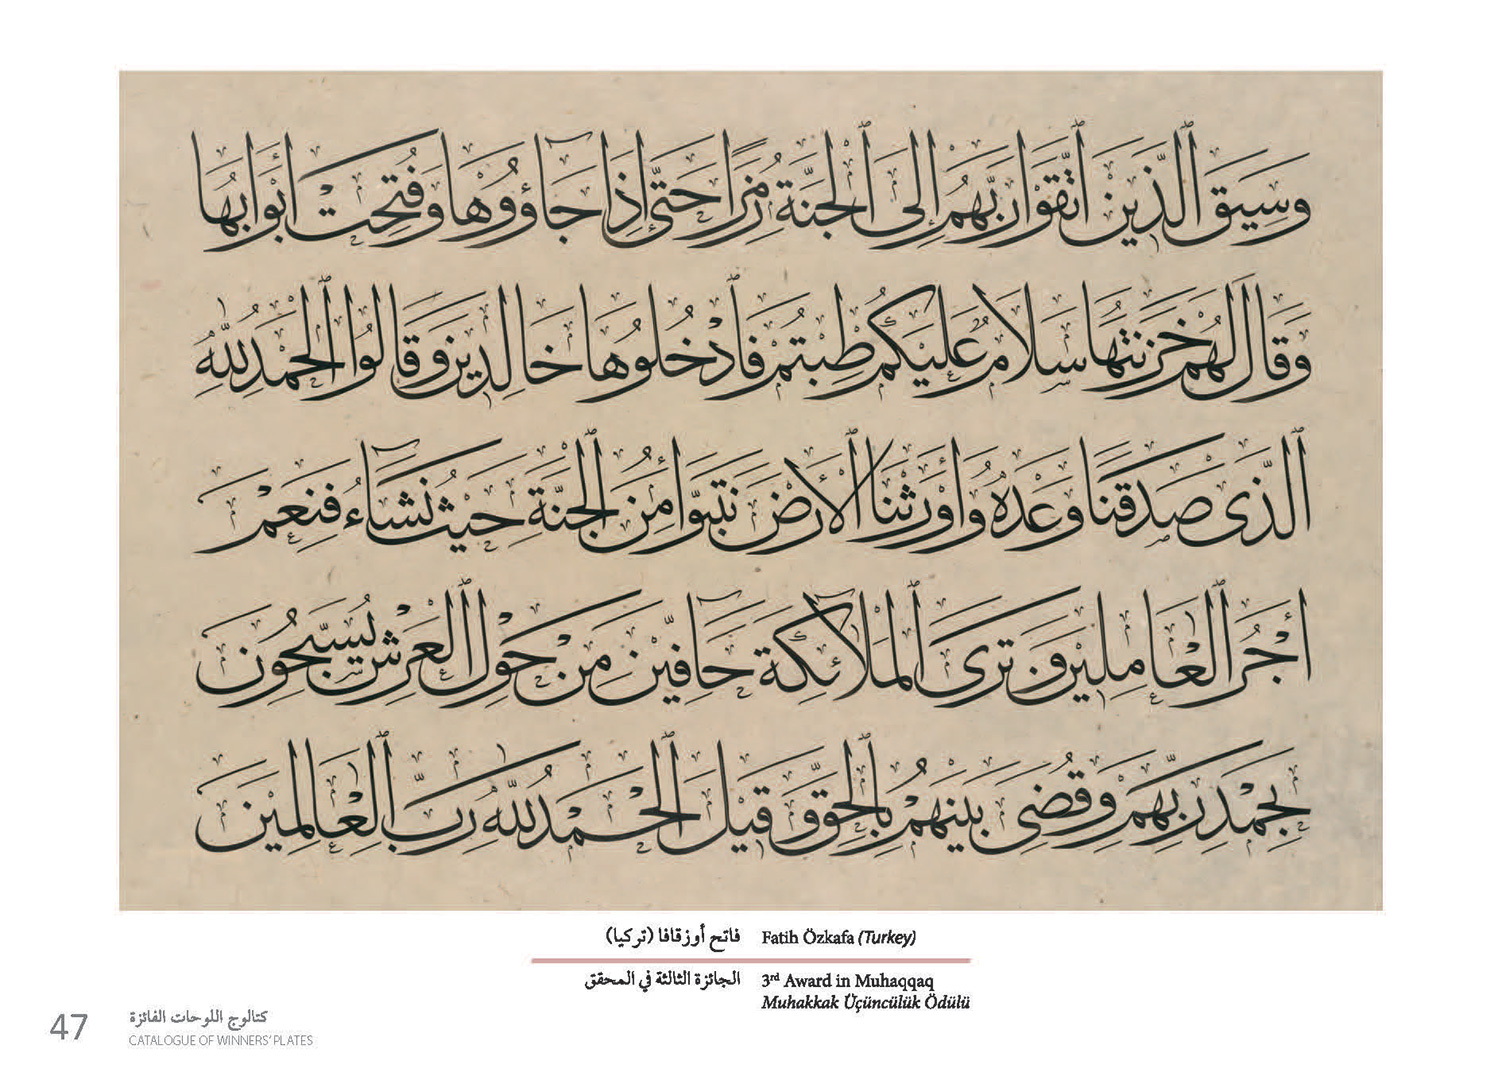 وسيق الذين اتقوا ربهم إلى الجنة زمرا حتى إذا جاؤوها وفتحت أبوابها
وقال لهم خزنتها سلام عليكم طبتم فادخلوها خالدين وقالوا الحمد لله
الذي صدقنا وعده وأورثنا الأرض نتبوأ من الجنة حيث نشاء فنعم
أجر العاملين وترى الملائكة حافين من حول العرش يسبحون
بحمد ربهم وقضي بينهم بالحق وقيل الحمد لله رب العالمين
فاتح أوزقافا (تركيا) Fatih Özkafa (Turkey)
الجائزة الثالثة في المحقق 3rd Award in Muhaqqaq
Muhakkak Üçüncülük Ödülü
47 كتالوج اللوحات الفائزة
CATALOGUE OF WINNERS' PLATES